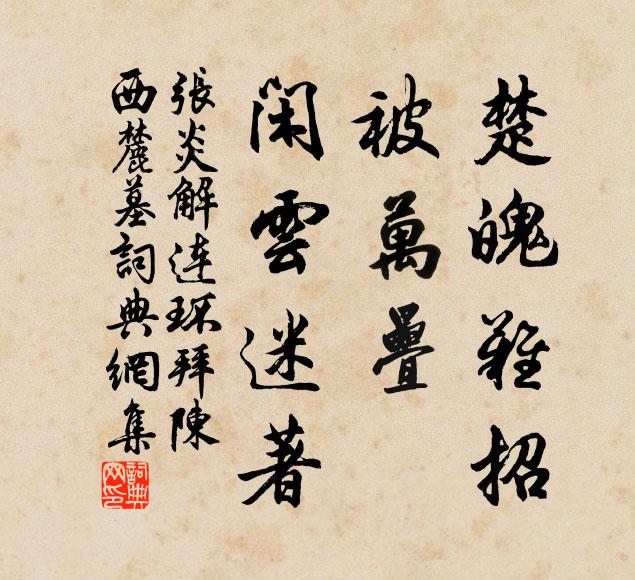 楚魄難招
被萬疊
閑雲迷著
張炎解連环拜陳
西麓墓詞典網集
詞典网印